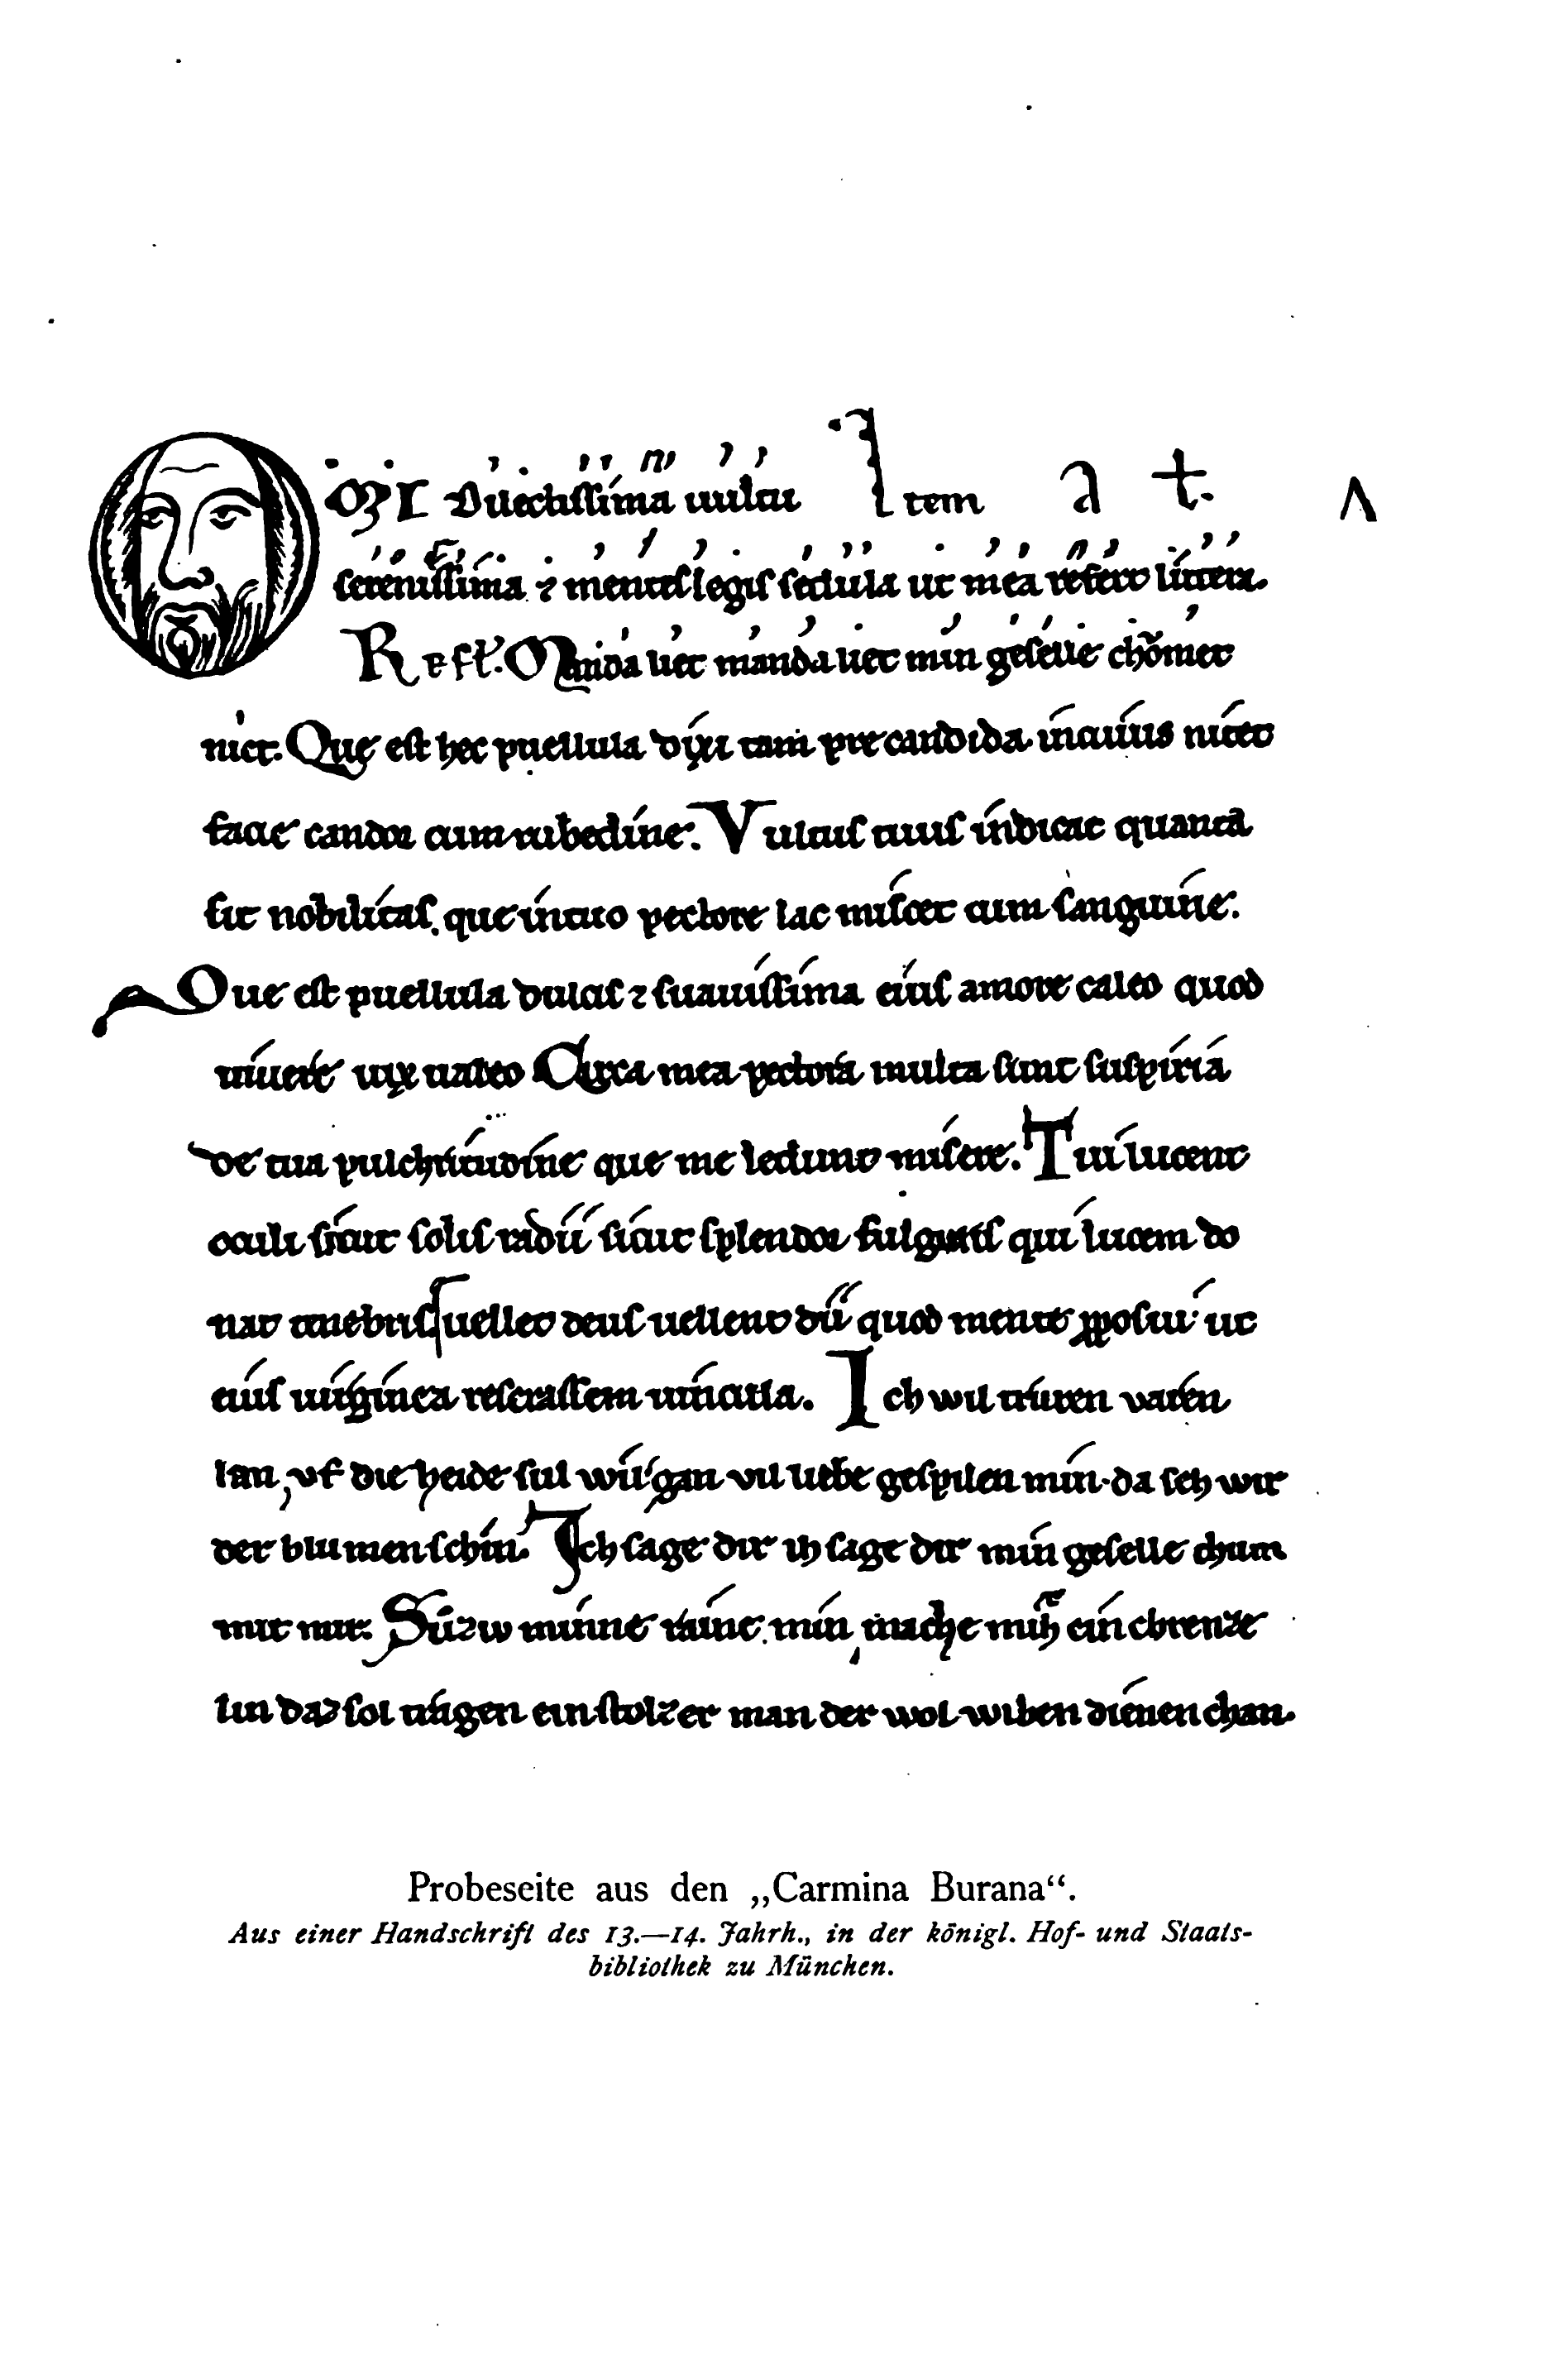 OMI Dilectissima uultu Item a t. Λ
serenissima ⁊ mentes legis sedula ut mea refert littera.
Refł. Manda liet manda liet min geselle chõmet
niet. Quę est hec puellula dixi tam precandida incuius nitet
facie candor cum rubedine. Vultus tuus indicat quanta
sit nobilitas. que intuo pectore lac miscet cum sanguine.
Que est puellula dulcis ⁊ suauissima eius amore caleo quod
uiuere uix ualeo Circa mea pectora multa sunt suspiria
de tua pulchritudine que me ledunt misere. Tui lucent
oculi sicut solis radii sicut splendor fulguris qui lucem do
nat tenebris uellet deus uellent dii quod mente ꝓposui ut
eius uirginea reserassem uincula. Ich wil truren varen
lan, vf die heide sul wir gan vil liebe gespilen min. da seh wir
der blumen schin. Ich sage dir ih sage dir min geselle chum
mit mir. Suͤziv minne raine min, mache mih ein chrenze
lin daz sol tragen ein stolzer man der wol wiben dienen chan.
Probeseite aus den „Carmina Burana“.
Aus einer Handschrift des 13.—14. Jahrh., in der königl. Hof- und Staats-
bibliothek zu München.